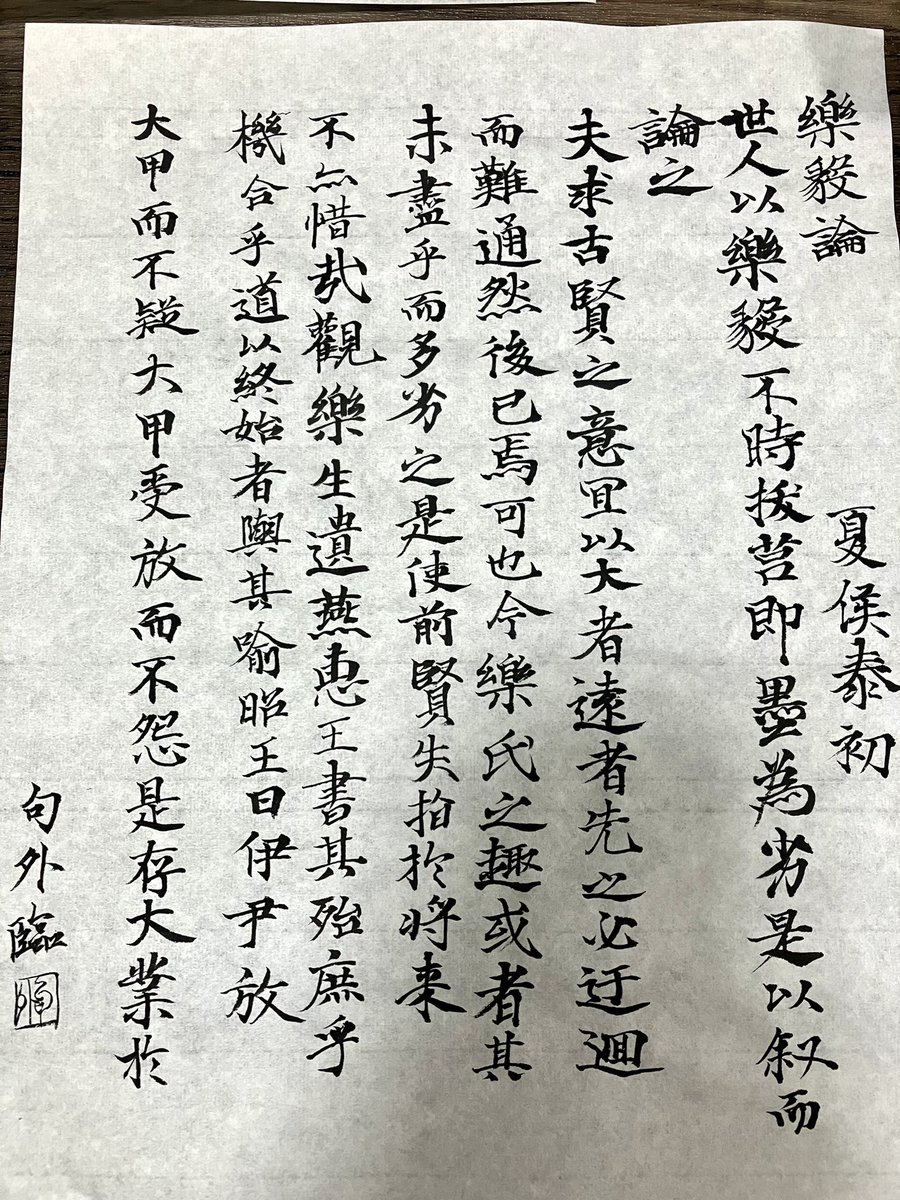 樂毅論
夏侯泰初
世人以樂毅不時拔莒即墨為劣是以叙而
論之
夫求古賢之意宜以大者遠者先之必迂迴
而難通然後已焉可也今樂氏之趣或者其
未盡乎而多劣之是使前賢失指於将来
不亦惜哉觀樂生遺燕惠王書其殆庶乎
機合乎道以終始者與其喻昭王曰伊尹放
大甲而不疑大甲受放而不怨是存大業於
句外臨